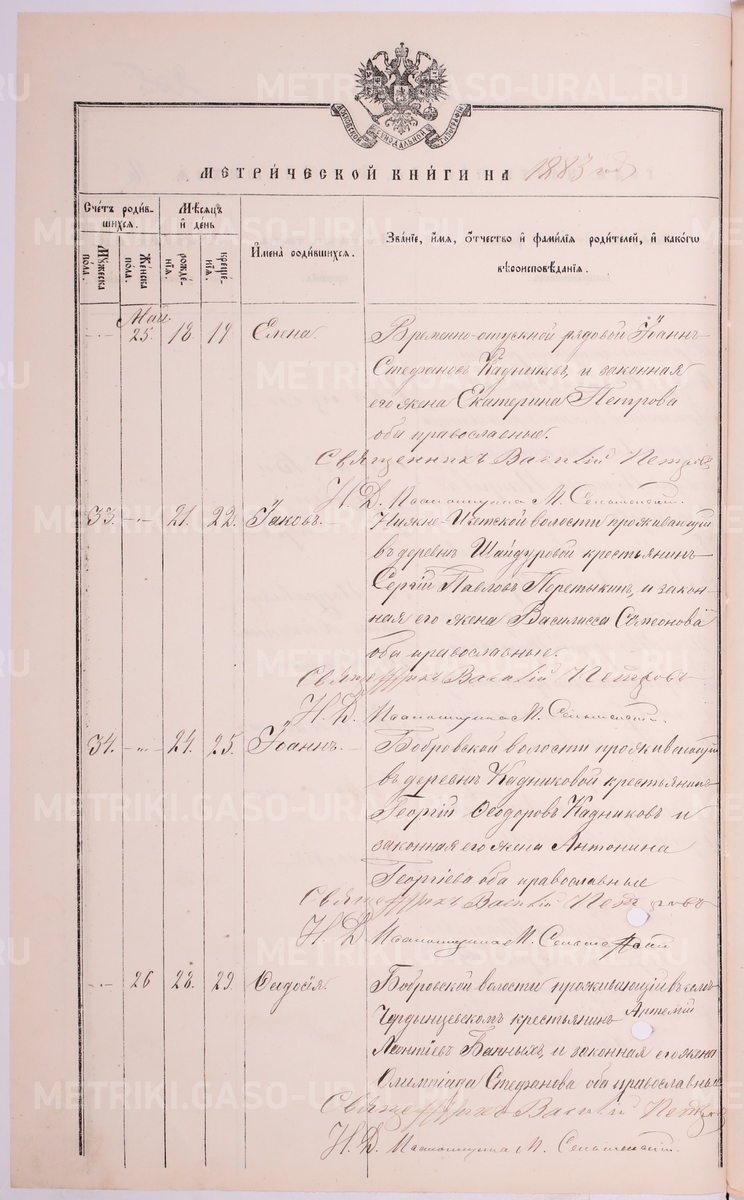 МОСКОВСКОЙ СѴНОДАЛЬНОЙ ТИПОГРАФІИ
МЕТРИ́ЧЕСКОЙ КНИ́ГИ НА 1883 год
Счетъ роди́в-
шихся.
Мѣсяцъ
и́ день
Имена̀ родившихся.
Зва́ніе, и́мя, ѻ́тчество и́ фами́лія роди́телей, и́ како́гѡ
вѣроисповѣ́данія.
Мꙋжеска
по́ла.
Же́нска
по́ла.
рожде́-
нїѧ.
креще́-
нїѧ.
Май.
-"- 25. 18. 19 Елена. Временно-отпускной рядовой Іоаннъ
Стефановъ Кадниковъ, и законная
его жена Екатерина Петрова
оба православные.
Священникъ Василій Петровъ
Н. Д. Псаломщика М.
33. -"- 21. 22. Іаковъ. Нижне-Исетской волости проживающій
въ деревнѣ Шайдуровой крестьянинъ
Сергій Павловъ Перетыкинъ, и закон-
ная его жена Василисса Симеонова
оба православные.
Священникъ Василій Петровъ
Н. Д. Псаломщика М.
34. -"- 24. 25. Іоаннъ. Бобровской волости проживающій
въ деревнѣ Кадниковой крестьянинъ
Георгій Ѳеодоровъ Кадниковъ и
законная его жена Антонина
Георгіева оба православные
Священникъ Василій Петровъ
Н. Д. Псаломщика М.
-"- 26 28. 29. Ѳеодосія. Бобровской волости проживающій въ селѣ
Чердынцевскомъ крестьянинъ Артемій
Леонтіевъ Банныхъ, и законная его жена
Олимпіада Стефанова оба православные
Священникъ Василій Петровъ
Н. Д. Псаломщика М.
METRIKI.GASO-URAL.RU